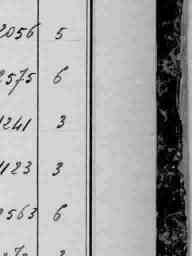 2056 5
2575 6
1241 3
1123 3
2563 6